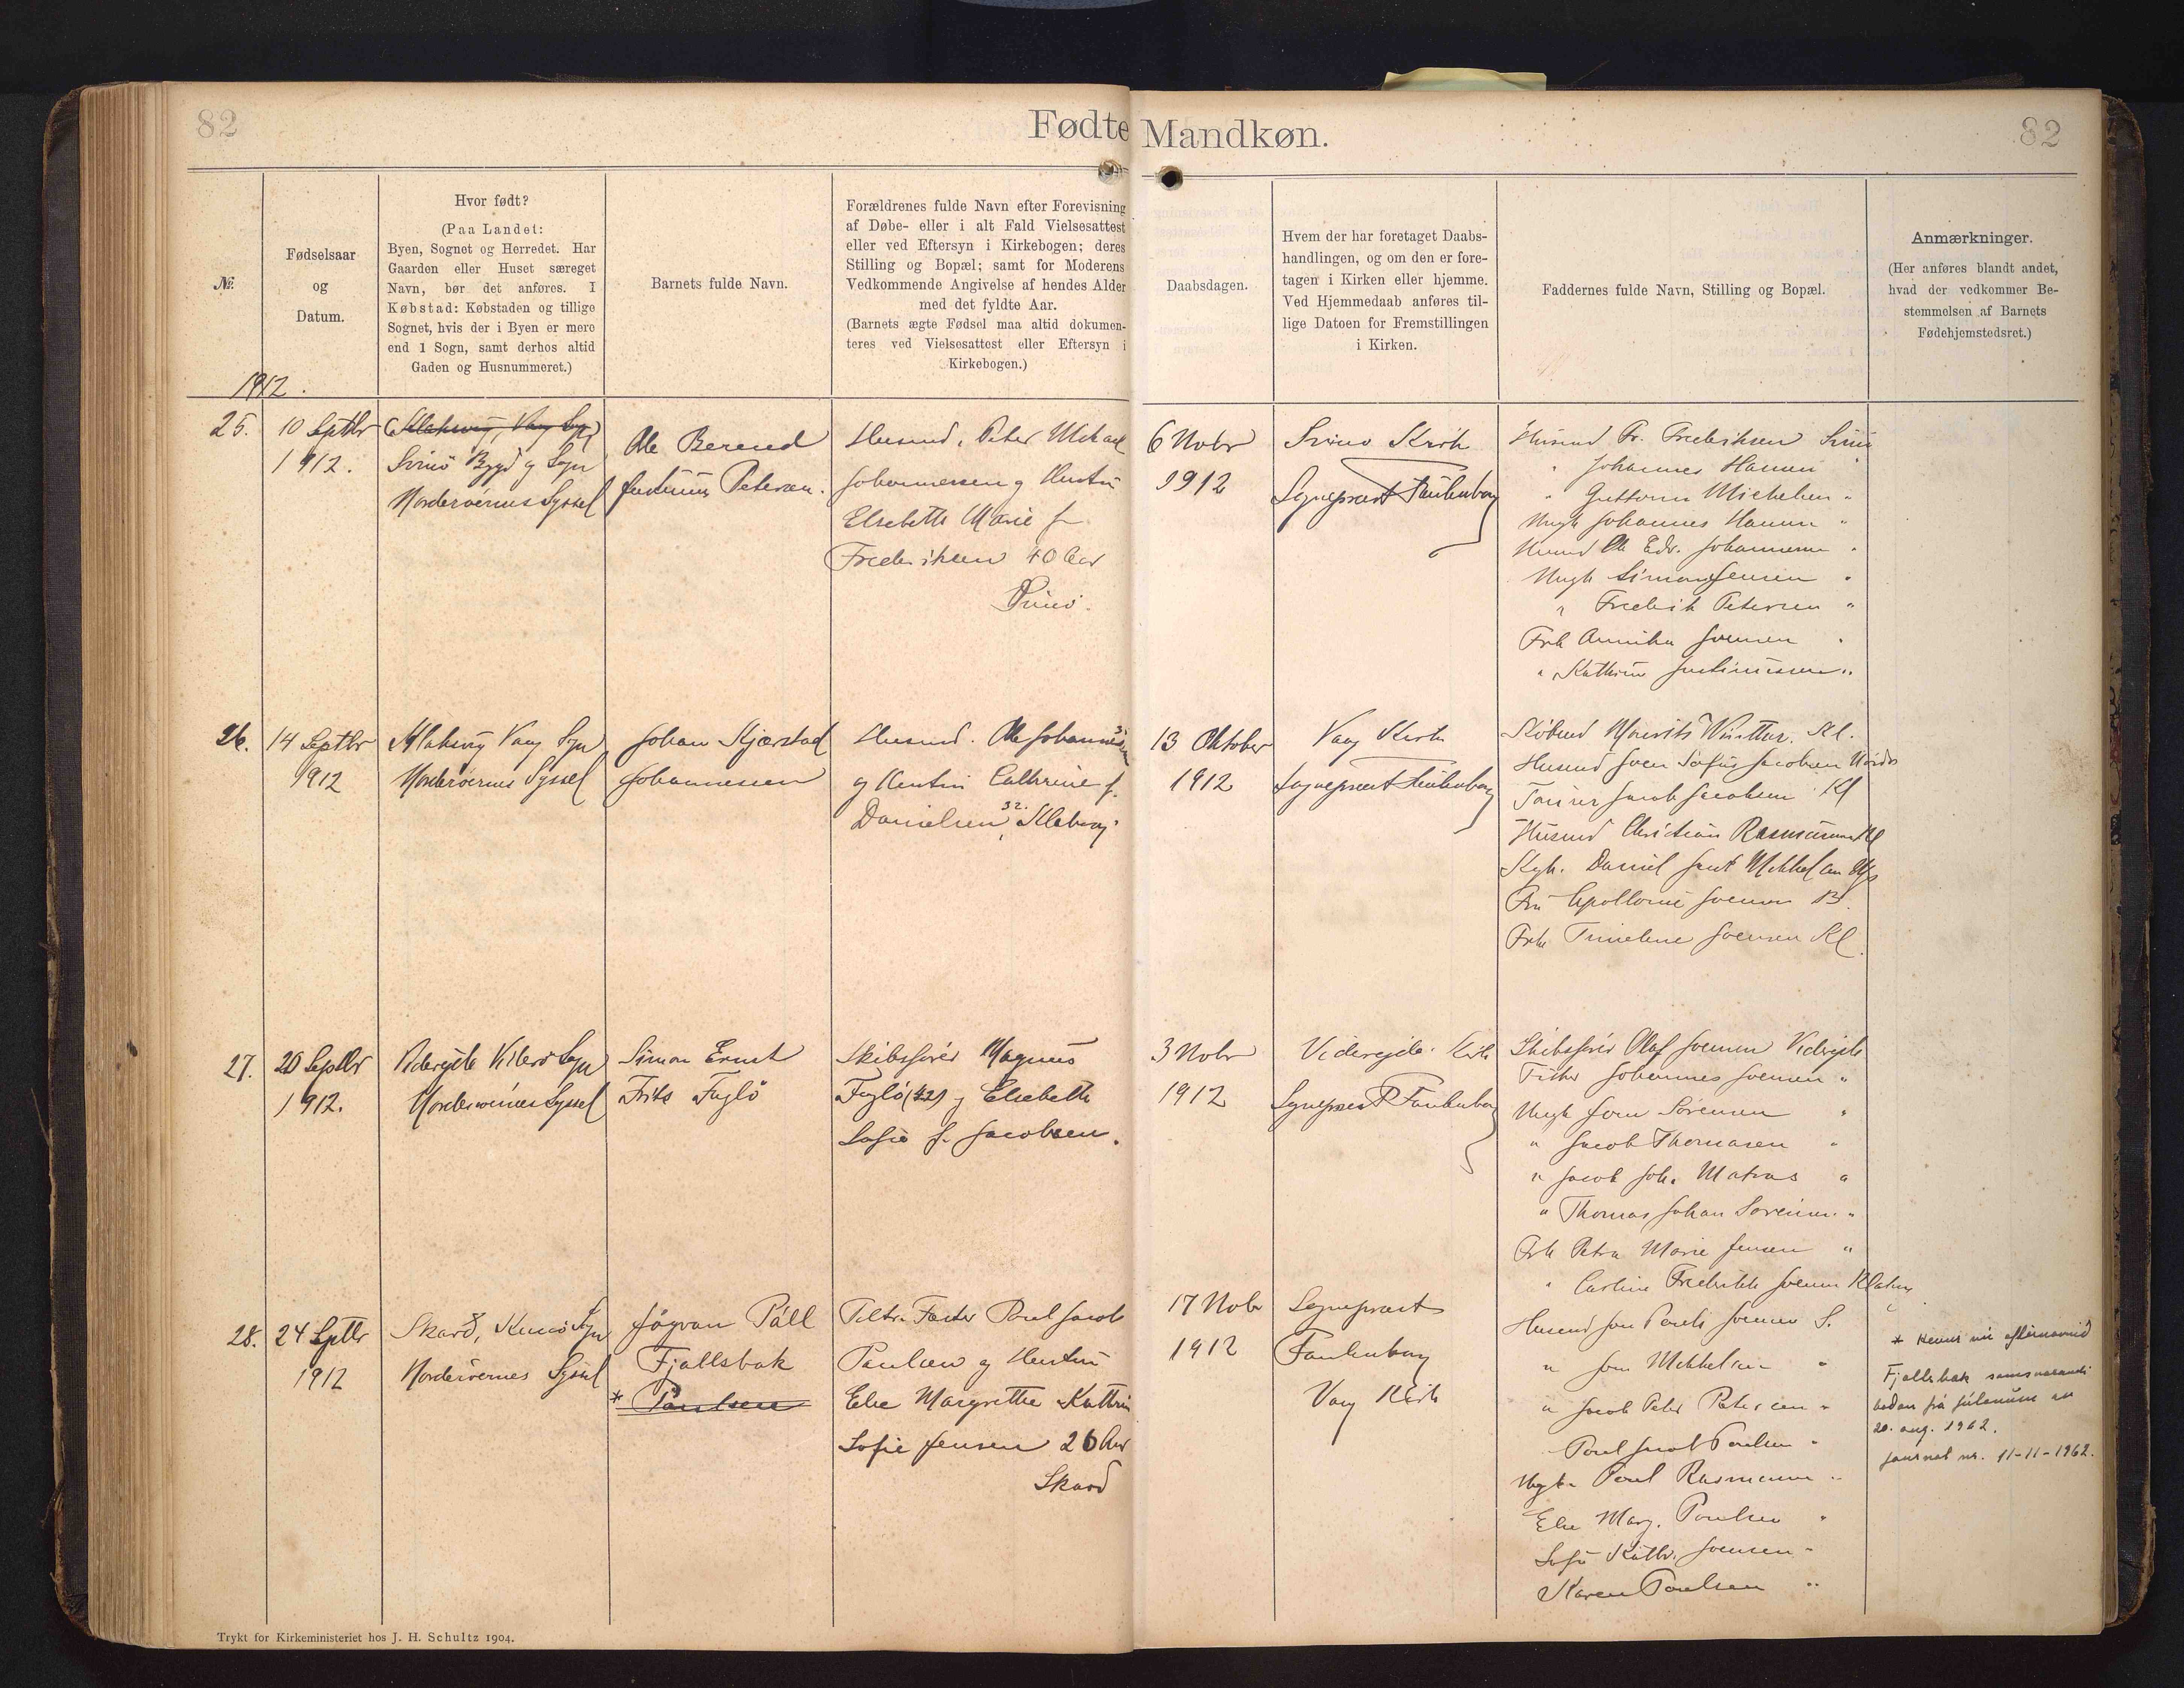 82
Fødte Mandkøn.
82
№
Fødselsaar
og
Datum.
Hvor født?
(Paa Landet:
Byen, Sognet og Herredet. Har
Gaarden eller Huset særeget
Navn, bør det anføres. I
Købstad: Købstaden og tillige
Sognet, hvis der i Byen er mere
end 1 Sogn, samt derhos altid
Gaden og Husnummeret.)
Barnets fulde Navn.
Forældrenes fulde Navn efter Forevisning
af Døbe- eller i alt Fald Vielsesattest
eller ved Eftersyn i Kirkebogen; deres
Stilling og Bopæl; samt for Moderens
Vedkommende Angivelse af hendes Alder
med det fyldte Aar.
(Barnets ægte Fødsel maa altid dokumen-
teres ved Vielsesattest eller Eftersyn i
Kirkebogen.)
Daabsdagen.
Hvem der har foretaget Daabs-
handlingen, og om den er fore-
tagen i Kirken eller hjemme.
Ved Hjemmedaab anføres til-
lige Datoen for Fremstillingen
i Kirken.
Faddernes fulde Navn, Stilling og Bopæl.
Anmærkninger.
(Her anføres blandt andet,
hvad der vedkommer Be-
stemmelsen af Barnets
Fødehjemstedsret.)
1912.
25.
10 Septbr
1912.
Svinö Bygd og Sogn
Norderøernes Syssel
Ole Berend
Justinus Petersen.
Husmd. Peter Michael
Johannesen og Hustru
Elsebeth Marie f.
Frederiksen 40 Aar
Svinö.
6 Novbr
1912
Svinö Kirk
Sognepræst Faulenborg
Husmd Fr. Frederiksen Svinö
" Johannes Hansen
" Guttorm Michelsen "
Ungk Johannes Hansen "
Husmd Ole Edv. Johannesen "
Ungk Simon Jensen "
" Frederik Petersen "
Frk Annika Joensen "
" Kathrine Justinussen "
26.
14 Septbr
1912
Klaksvig Vaag Sogn
Norderøernes Syssel
Johan Kjærstad
Johannesen
Husmd. Ole Johannesen
og Hustru Cathrine f.
Danielsen 32. Klaksvig.
13 Oktober
1912
Vaag Kirke
Sognepræst Faulenborg
Købmd Mourits Winther. Kl.
Husmd Joen Sofus Jacobsen
Jacob Jacobsen Kl
Husmd Christian Rasmussen Kl
Daniel Mikkelsen
Fru Apollonie Joensen B.
Frk Trinelene Joensen Kl.
27.
20 Septbr
1912.
Videreide Viderö Sogn
Norderøernes Syssel
Simon Ernst
Frits Fuglö
Skibsfører Magnus
Fuglö (42) og Elsebeth
Sofie f. Jacobsen.
3 Novbr
1912
Videreide Kirk
Sognepræst Faulenborg
Skibsfører Olaf Joensen Videreide
Johannes Joensen "
Ungk Joen Sørensen "
" Jacob Thomasen "
" Jacob Joh. Matras "
" Thomas Johan Sørensen "
Frk Petra Marie Jensen "
" Frederikke Joensen Klaksv
28.
24 Septbr
1912
Skarð, Kunö Sogn
Norderøernes Syssel
Jógvan Páll
Fjallsbak
* Poulsen
Poul Jacob
Poulsen og Hustru
Else Margrethe Kathrine
Sofie Jensen 26 Aar
Skard
17 Novbr
1912
Sognepræst
Faulenborg
Vaag Kirk
Husmd Joensen S.
" Joen Mikkelsen "
" Jacob Peter Petersen "
Poul Jacob Poulsen "
Ungk. Poul Rasmussen "
Else Marg. Poulsen "
Sofie Kathr. Joensen "
Karen Poulsen "
* Kennir nú eftirnavnið
Fjallsbak samsvarandi
20. aug. 1962.
journal nr. 11-11-1962.
Trykt for Kirkeministeriet hos J. H. Schultz 1904.